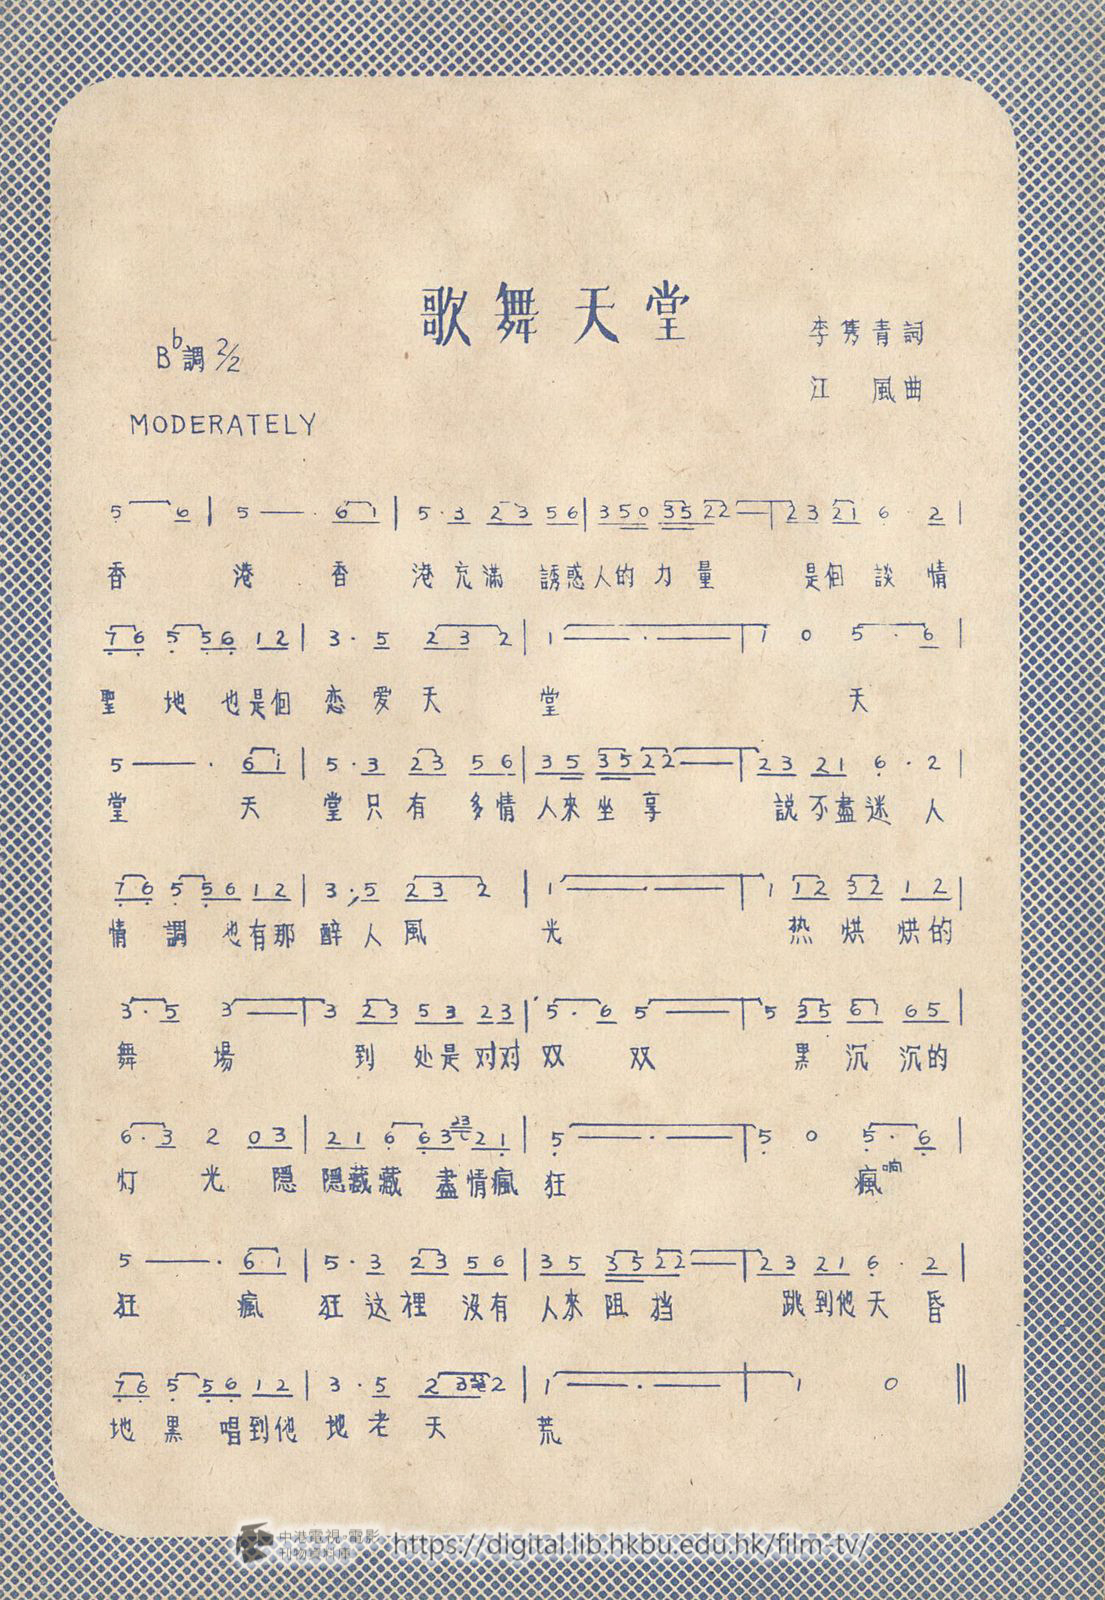 歌舞天堂
李隽青詞
江風曲
B♭調 2/2
MODERATELY
5 6 | 5 — · 6 1 | 5 · 3 2 3 5 6 | 3 5 0 3 5 2 2 — | 2 3 2 1 6 · 2 |
香 港 香 港充滿 誘惑人的力量 是個談情
7 6 5 5 6 1 2 | 3 · 5 2 3 2 | 1 — · — | 1 0 5 · 6 |
聖地也是個 恋爱天 堂 天
5 — · 6 i | 5 · 3 2 3 5 6 | 3 5 3 5 2 2 — | 2 3 2 1 6 · 2 |
堂 天 堂只有多情 人來坐享 説不盡迷人
7 6 5 5 6 1 2 | 3 · 5 2 3 2 | 1 — · — | 1 1 2 3 2 1 2 |
情調也有那 醉人風 光 热烘烘的
3 · 5 3 — | 3 2 3 5 3 2 3 | 5 · 6 5 — | 5 3 5 6 1 6 5 |
舞場 到处是对对 双双 黑沉沉的
6 · 3 2 0 3 | 2 1 6 6 3 23 2 1 | 5 — · — | 5 0 5 · 6 |
灯光隱 隱藏藏盡情瘋 狂 瘋响
5 — · 6 · 1 | 5 · 3 2 3 5 6 | 3 5 3 5 2 2 — | 2 3 2 1 6 · 2 |
狂 瘋 狂这裡没有 人來阻挡 跳到他天昏
7 6 5 5 6 1 2 | 3 · 5 2 3 2 | 1 — · — | 1 0 ‖
地黑唱到他 地老天 荒
中港電視·電影
刊物資料庫
https://digital.lib.hkbu.edu.hk/film-tv/